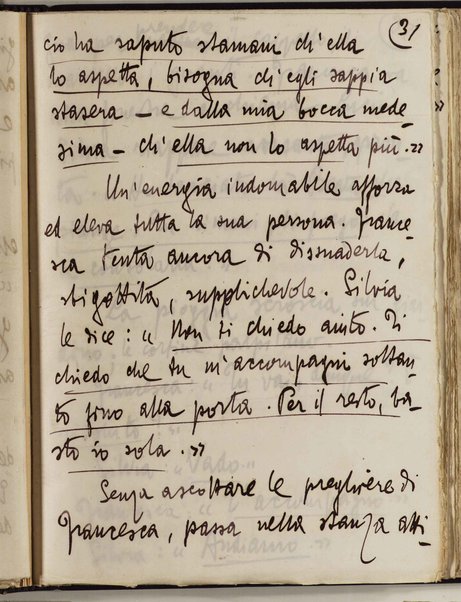 31
ciò ha saputo stamani ch'ella
lo aspetta, bisogna ch'egli sappia
stasera – e dalla mia bocca mede-
sima – ch'ella non lo aspetta più. »
Un'energia indomabile afforza
ed eleva tutta la sua persona. France-
sca tenta ancora di dissuaderla,
sbigottita, supplichevole. Silvia
le dice: « Non ti chiedo aiuto. Ti
chiedo che tu m'accompagni soltan-
to fino alla porta. Per il resto, ba-
sto io sola. »
Senza ascoltare le preghiere di
Francesca, passa nella stanza atti-